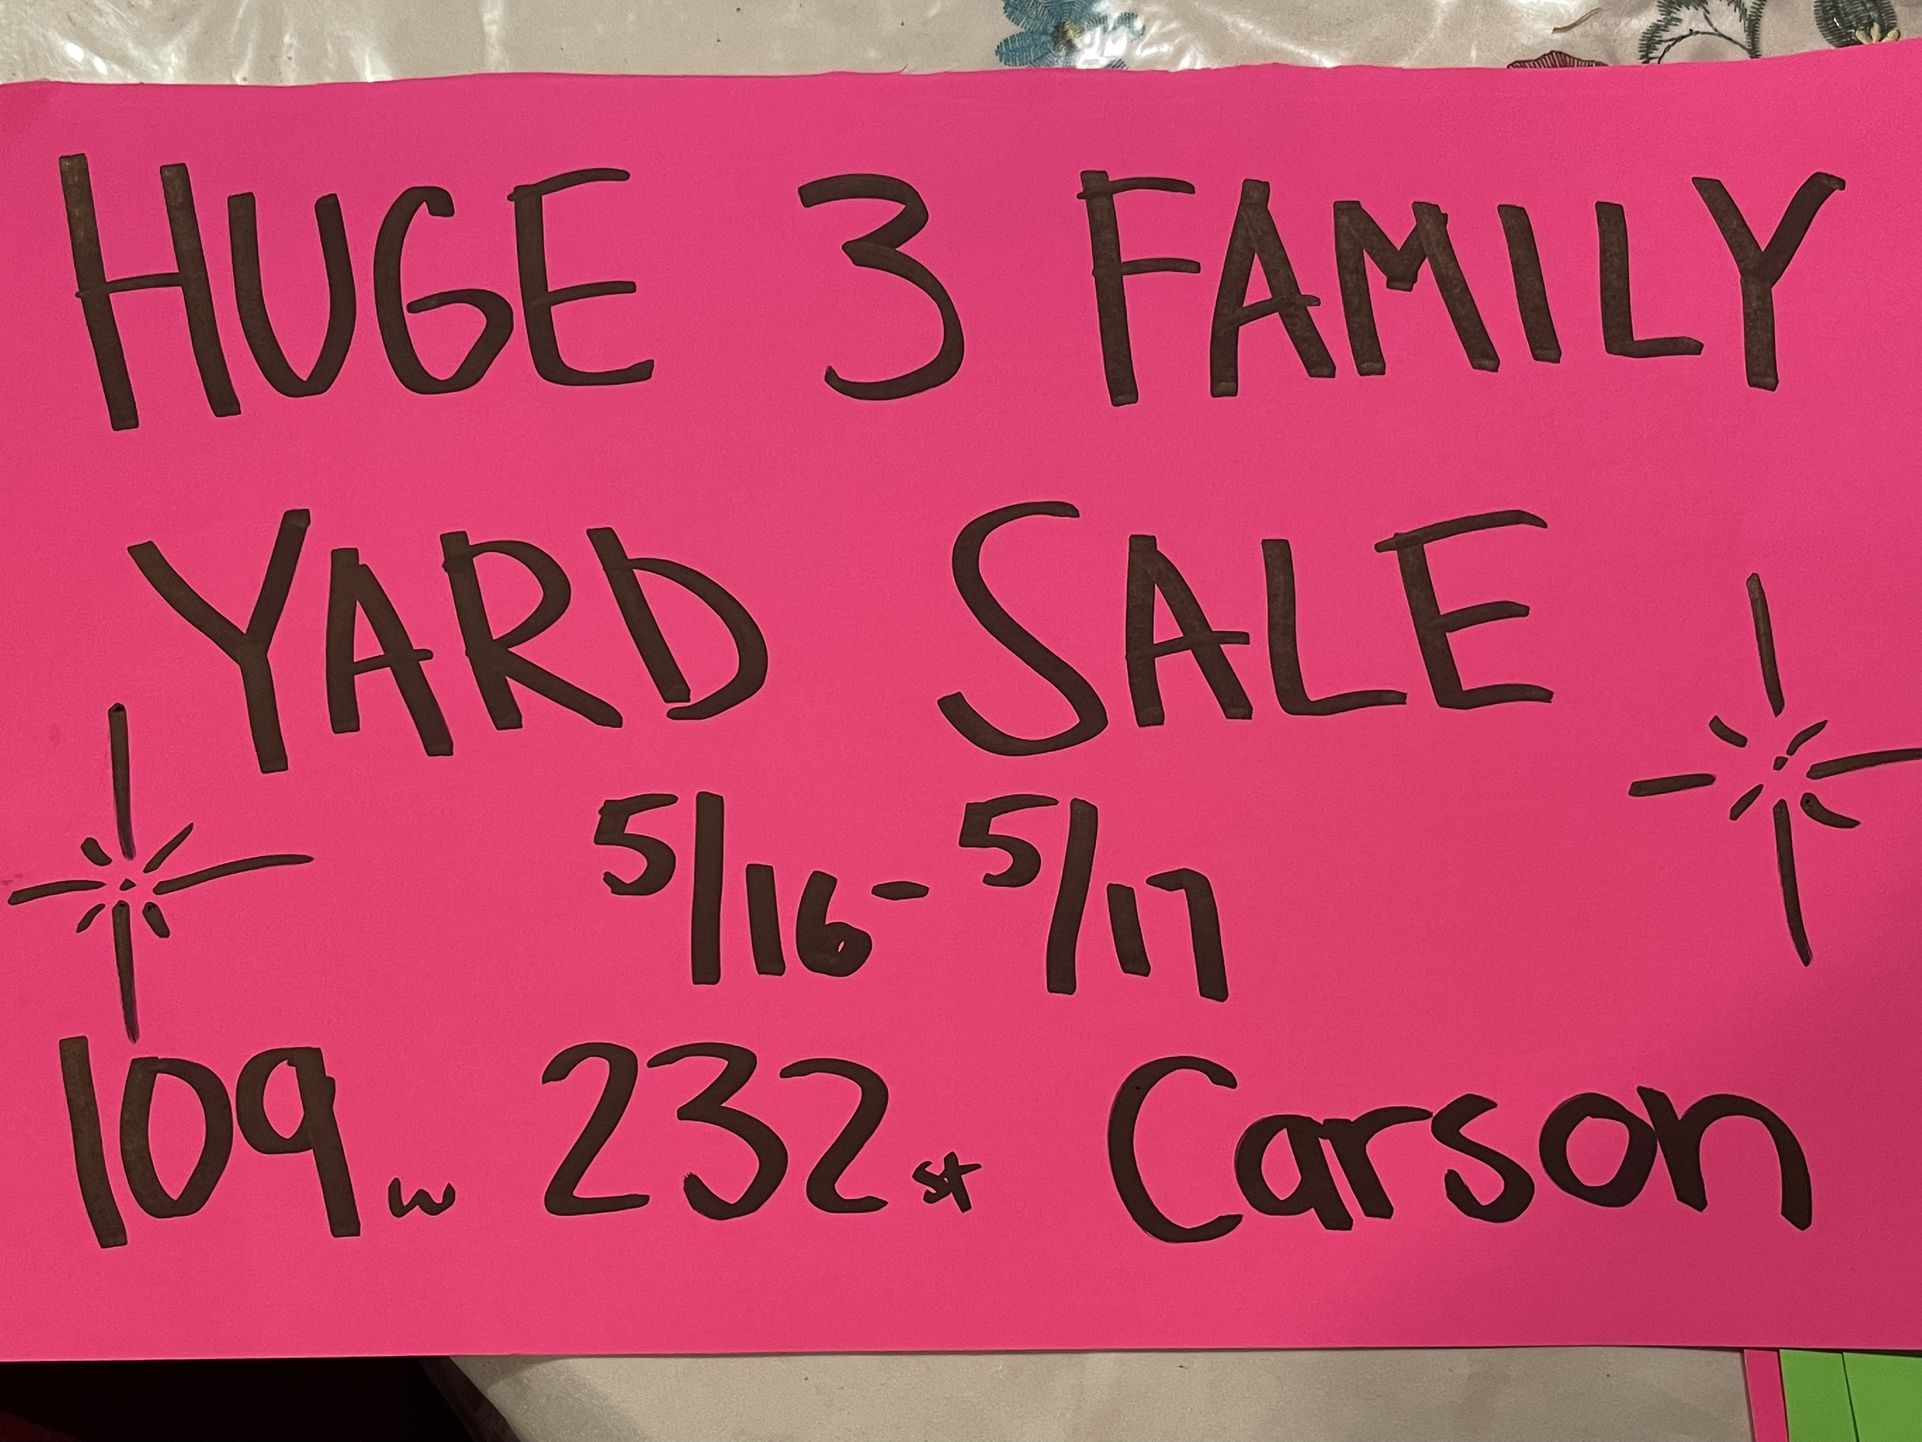 HUGE 3 FAMILY
YARD SALE
5/16-5/17
109 w 232 st Carson